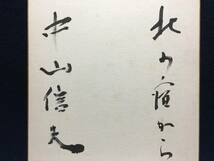 北の宿から
中山信夫